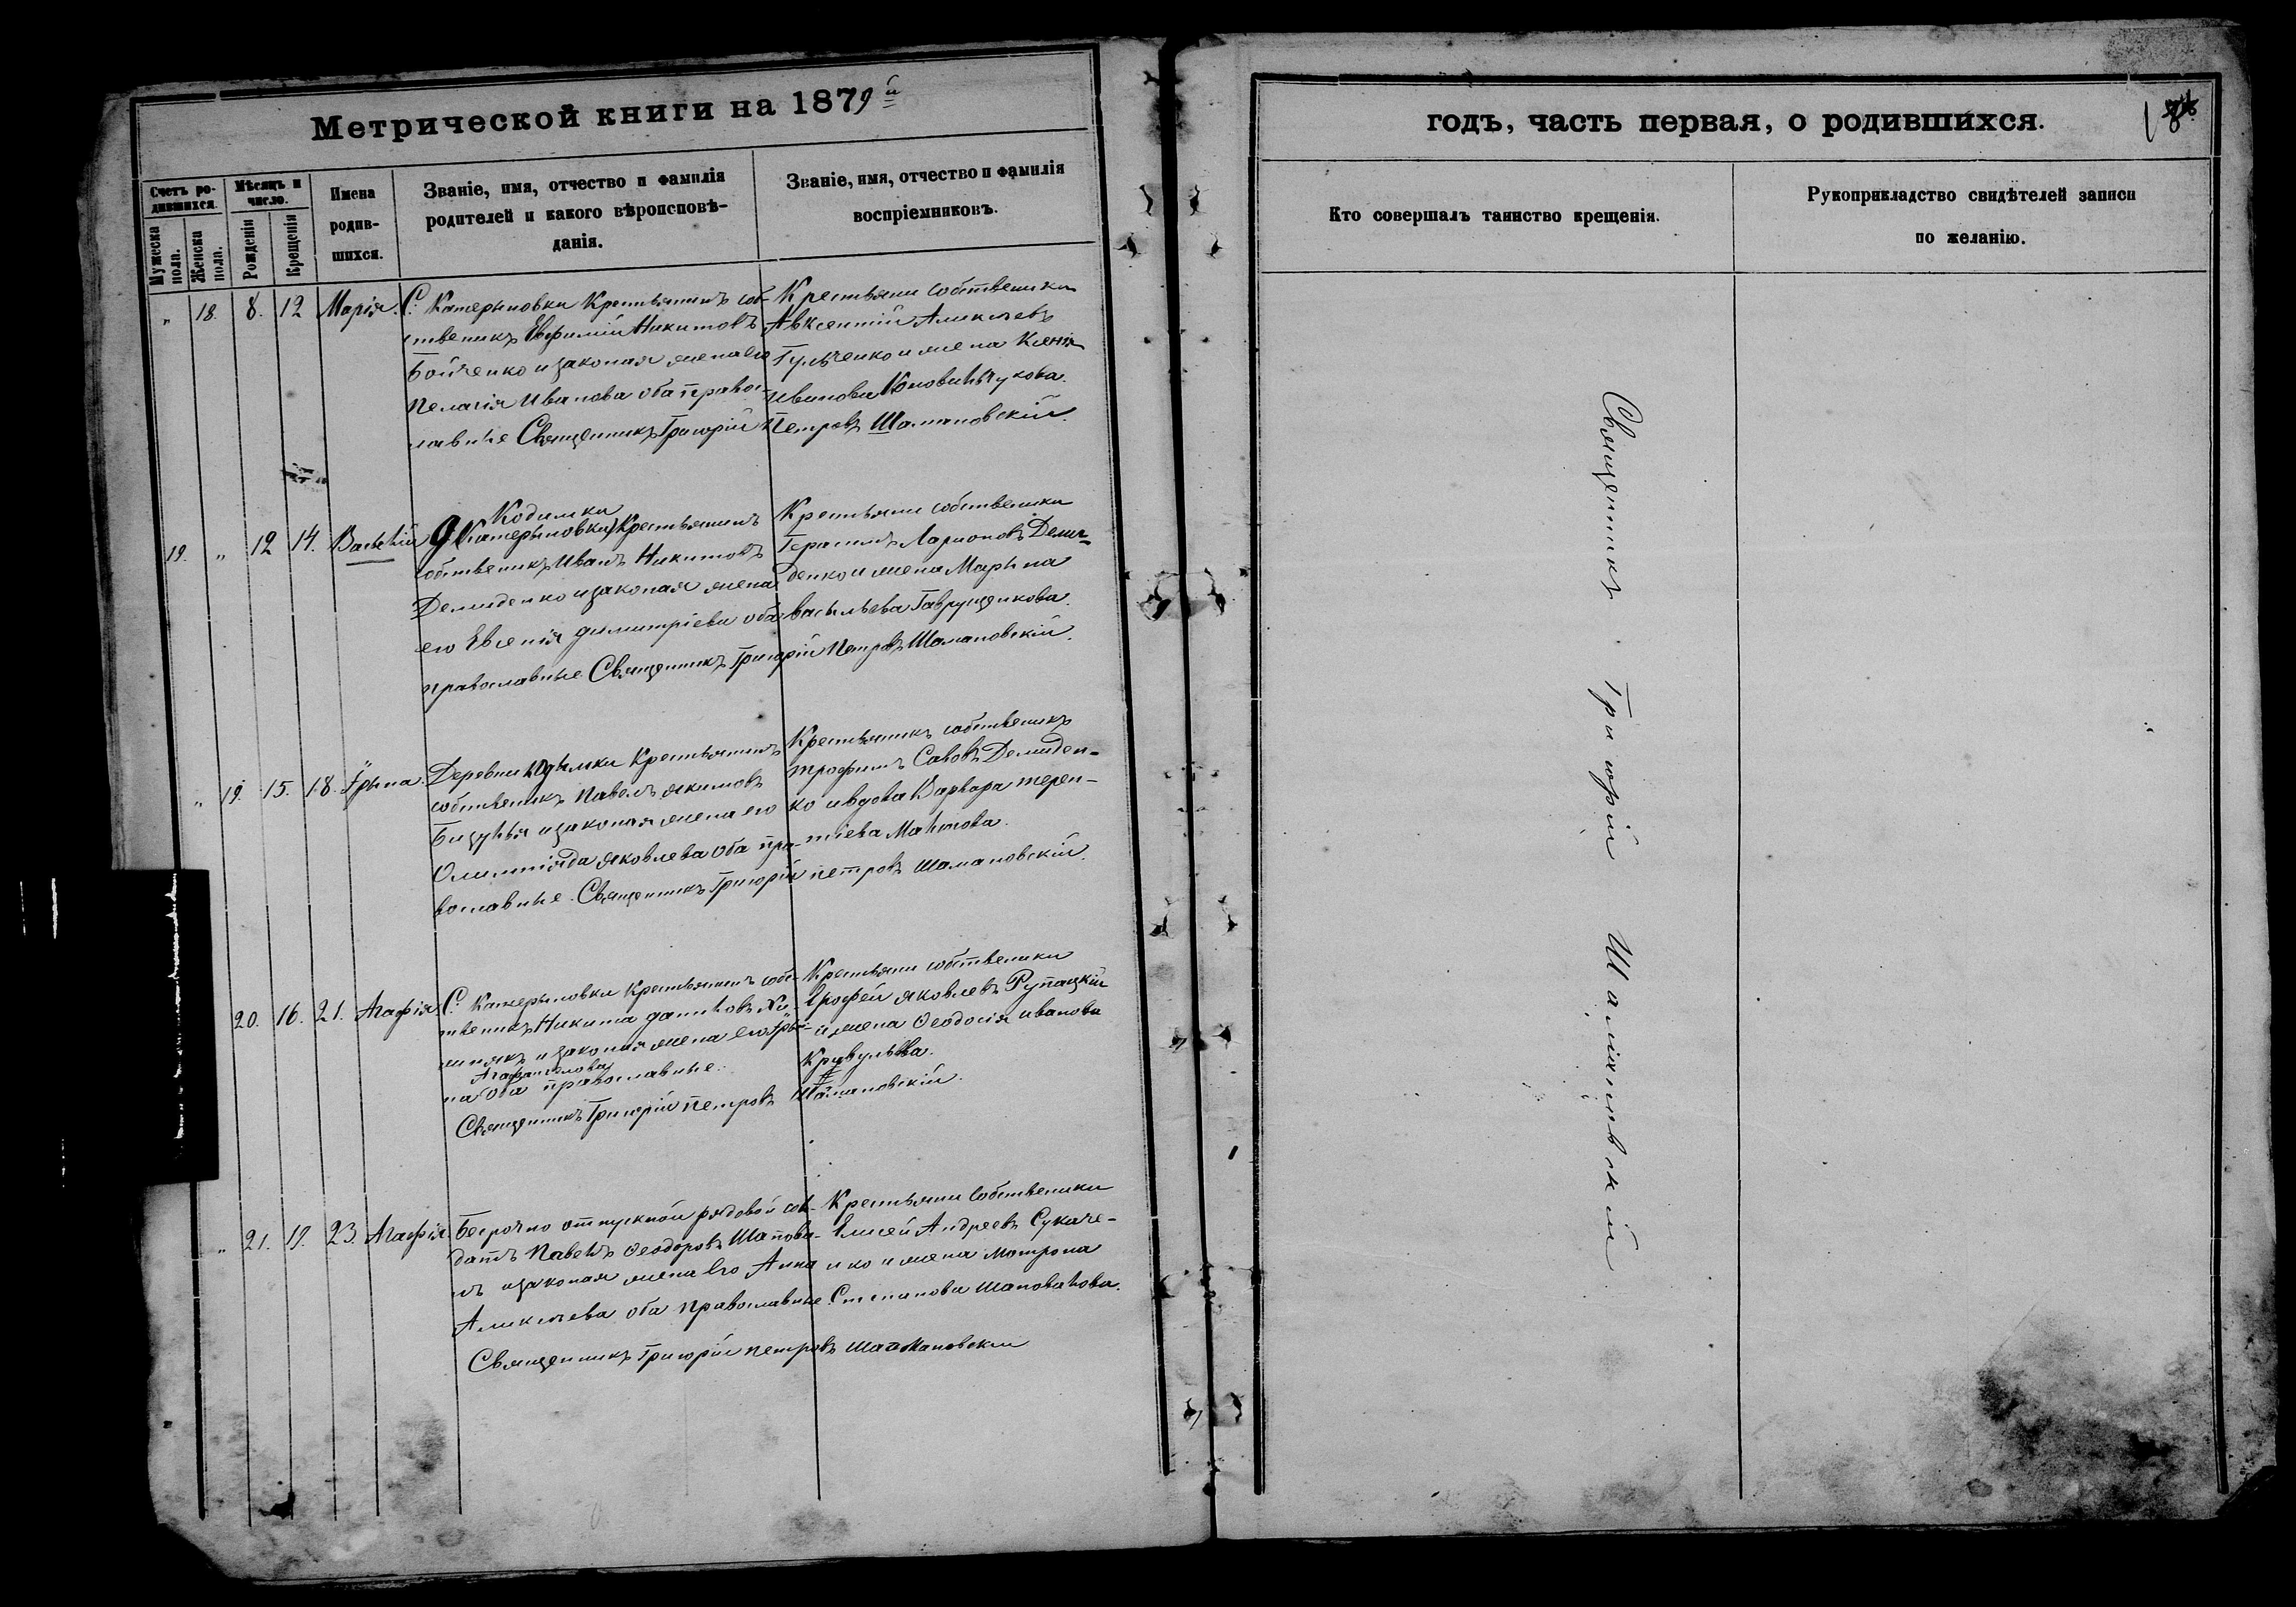 Метрической книги на 1879й
годъ, часть первая, о родившихся.
Счетъ ро-
дившихся.
Мужеска пола.
Женска пола.
Мѣсяцъ и
число.
Рожденія
Крещенія
Имена
родив-
шихся.
Званіе, имя, отчество и фамилія
родителей и какого вѣроисповѣ-
данія.
Званіе, имя, отчество и фамилія
воспріемниковъ.
Кто совершалъ таинство крещенія.
Рукоприкладство свидѣтелей записи
по желанію.
„ 18. 8. 12 Марія. С. Катерыновки Крестьянинъ соб-
ственикъ Евфимій Никитовъ
Бойченко и законая жена его
Пелагія Иванова оба право-
лавные Священникъ Григорій
Крестьяни собственики
Авксентій Аликсѣевъ
Гульченко и жена Ксенія
Иванова
Петровъ Шамановскій.
19. „ 12 14. Василій Кодымки
(Катерыновки) Крестьянинъ
собственикъ Иванъ Никитовъ
Демиденко и законая жена
его Евгенія Димитріева оба
православные Священникъ Григорій Петровъ Шамановскій.
Крестьяни собственики
Герасимъ Ларионовъ Деми-
денко и жена Марына
Васильева Гаврущенкова.
„ 19. 15. 18. Ірына. Деревни Кодымки Крестьянинъ
собственикъ Павелъ Якимовъ
и законая жена его
Олимпіяда Яковлева оба пра-
вославные. Священникъ Григорій Петровъ Шамановскій.
Крестьянинъ собственикъ
Трофимъ Савовъ Демиден-
ко и вдова Варвара Терен-
тіева
20. 16. 21. Агафія. С. Катерыновки Крестьянинъ соб-
твеникъ Никита
и законая жена его Іры-
Агафангелова
на оба православные.
Священникъ Григорій Петровъ Шамановскій.
Крестьяни собственики
Ерофей Яковлевъ
и жена Феодосія Иванова
„ 21. 19. 23. Агафія. Безрочно отпускной рядовой сол-
датъ Павелъ Феодоровъ Шапова-
лъ и законая жена его Анна
Аликсѣева оба православные.
Священникъ Григорій Петровъ Шамановскій
Крестьяни Собственики
Елисей Андреевъ Сукаче-
нко и жена Матрона
Степанова Шаповалова.
Священникъ Григорій Шамановскій